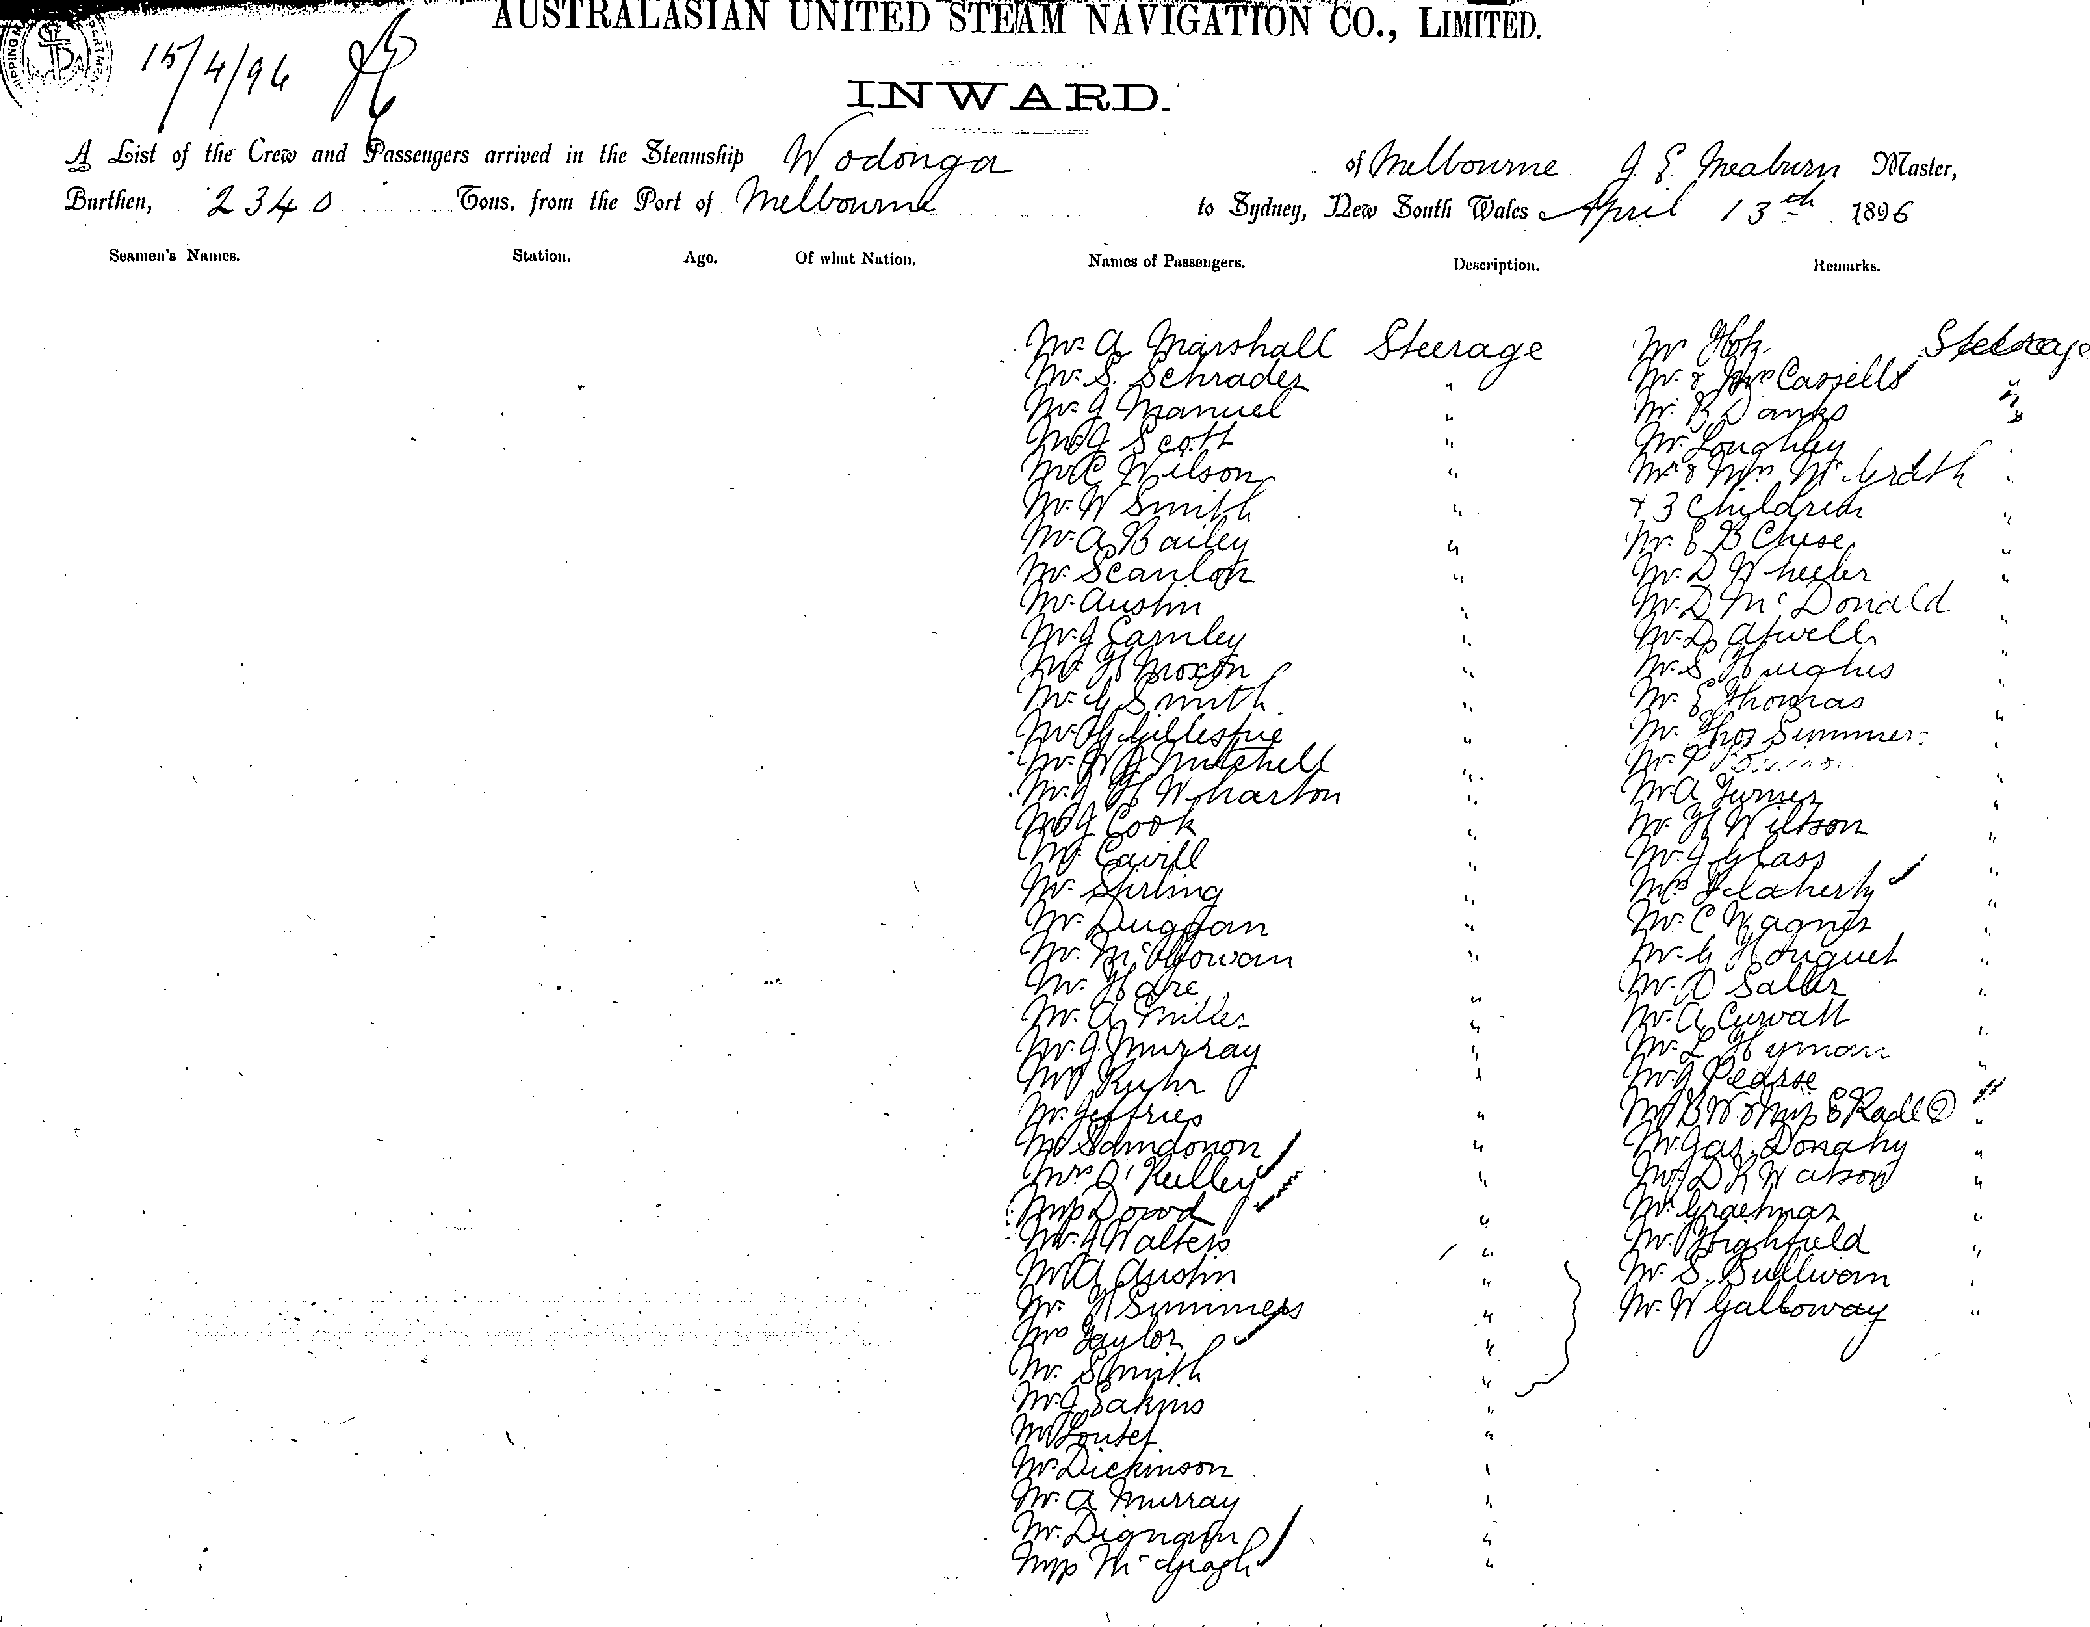 AUSTRALASIAN UNITED STEAM NAVIGATION CO., LIMITED.
15/4/96
INWARD.
A List of the Crew and Passengers arrived in the Steamship Wodonga of Melbourne J E Meaburn Master,
Burthen, 2340 Tons, from the Port of Melbourne to Sydney, New South Wales April 13th 1896
Seamen's Names. Station. Age. Of what Nation. Names of Passengers. Description. Remarks.
Mr A Marshall Steerage
Mr. S. Schrader "
Mr J Manuel "
Mr J Scott "
Mr C Wilson "
Mr. W Smith "
Mr. A Bailey "
Mr. Scanlon "
Mr. Austin "
Mr. J Carnley "
Mr H Moxon "
Mr. G Smith "
Mr. H Gillespie "
Mr. W J Mitchell "
Mr. J H Wharton "
Mr J Cook "
Mr Cavill "
Mr. Stirling "
Mr. Duggan "
Mr. McGowan "
Mr. Hare "
Mr. A Miller "
Mr. J. Murray "
Mr Ruhr "
Mr. Jeffries "
Mr "
Mrs O'Kelley "
Miss Dowd "
Mr. J Walters "
Mr A Austin "
Mr. H Summers "
Mrs Taylor "
Mr. Smith "
Mr. J Eakins "
Mr "
Mr. Dickinson "
Mr. A Murray "
Mr. Dignam "
Miss "
Mr Steerage
Mr. & Mrs Cassells "
Mr. R Danks "
Mr. Loughley "
Mr & Mrs McGrath "
+ 3 Children "
Mr. E B Chese "
Mr. D Wheeler "
Mr. D McDonald "
Mr. D Atwell "
Mr. S Hughes "
Mr. E Thomas "
Mr. Thos Summer "
Mr. P
Mr A Turner "
Mr. H Wilson "
Mr. J Glass "
Mrs Flaherty "
Mr. C Wagner "
Mr. G Houguet "
Mr. D Salter "
Mr. A Curvall "
Mr. L Hyman "
Mr J Pearse "
Mr B W & Miss E Radl 2 "
Mr. Jas. Donahy "
Mr D R Watson "
Mr. Graetmar "
Mr. Highfield "
Mr. S. Sullivan "
Mr. W Galloway "